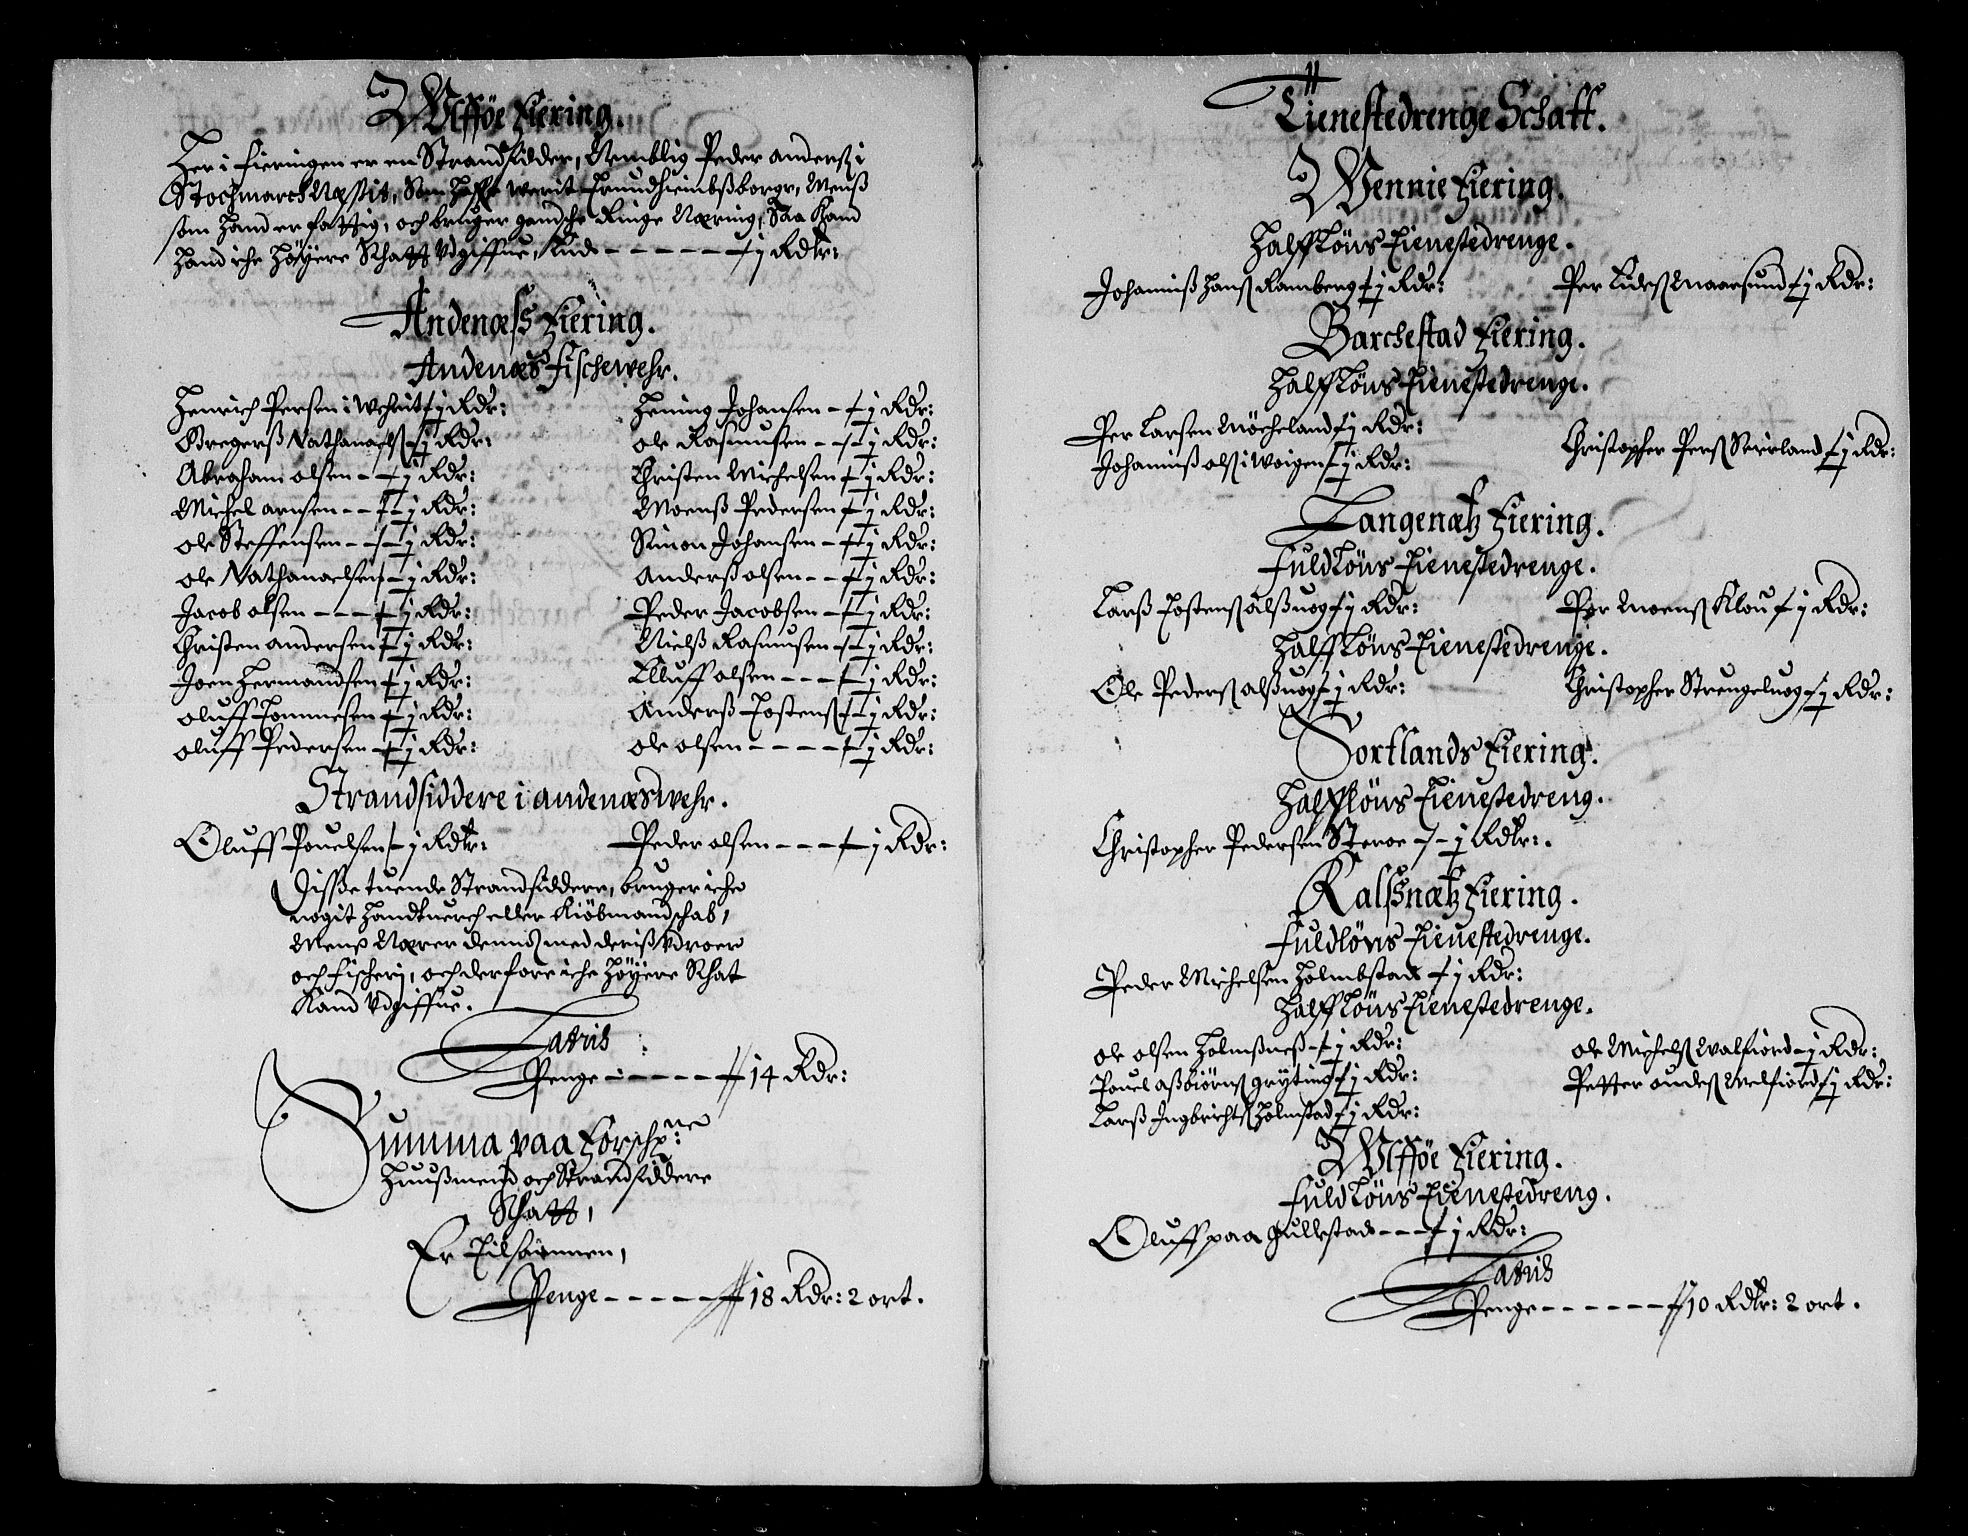 Ulfføe Fiering.
Her i Fieringen er en Strandsidder, Nemblig Peder anderß i
Stochmarchnæssit, Som Haffr werit Trundhiembßborgr, Menß
som hand er fattig, och bruger gandsche Ringe Næring, Saa Kand
hand iche Høyere Schatt Udgiffue, End ----- j Rdlr:
Andenæss Fiering.
Andenæs Fischewehr.
Henrich Persen i Wehrit j Rdr:
Gregerß Nathanaelß j Rdr:
Abraham olsen - j Rdr:
Michel arnsen -- j Rdr:
ole Steffensen -- j Rdr:
ole Nathanaelsen - j Rdr:
Jacob olsen --- j Rdr:
Christen andersen j Rdr:
Joen Hermandsen j Rdr:
oluff Tommesen j Rdr:
oluff Pedersen j Rdr:
Hening Johansen - j Rdr:
ole Rasmusen -- j Rdr:
Christen Michelsen j Rdr:
Moenß Pedersen j Rdr:
Simon Johansen - j Rdr:
Anderß olsen -- j Rdr:
Peder Jacobsen - j Rdr:
Nielß Rasmusen - j Rdr:
Elluff olsen --- j Rdr:
Anderß Tostenß j Rdr:
ole olsen ---- j Rdr:
Strandsiddere i andenæswehr.
Oluff Pouelsen j Rdlr:
Peder olsen --- j Rdr:
Disse tuende Strandsiddere, bruger iche
nogit Handtuerch eller Kiøbmandschab,
Menß Nærer dennd med deriß Udroer
och Fischerj, och derfore iche Høyere Schat
Kand Udgiffue.
Lateris
Penge ----- 14 Rdr:
Summa paa Forschne:
Huußmend och Strandsiddere
Schatt,
Er Tilsammen,
Penge ----- 18 Rdr: 2 ort.
Tienestedrenge Schatt.
Wennie Fiering.
Halfflöns Tienestedrenge.
Johanniß Hanß Ramberg j Rdr:
Per Maarsund j Rdr:
Barchestad Fiering.
Halfflöns Tienestedrenge.
Per Larsen Möcheland j Rdr:
Johanniß olß i Woigen j Rdr:
Christopher Perß Seirland j Rdr:
Langenætz Fiering.
Fuldlöns Tienestedrenge.
Larß Tostenß alßuog j Rdr:
Per Moenß Klou j Rdr:
Halfflöns Tienestedrenge.
Ole Pederß alßuog j Rdr:
Christopher Strengeluog j Rdr:
Sortlands Fiering.
Halfflöns Tienestedreng.
Christopher Pedersen Steroe - j Rdlr:.
Kalssnætz Fiering.
Fuldlöns Tienestedrenge.
Peder Michelsen Holmbstad j Rdr:
Halfflöns Tienestedrenge.
ole olsen Holmßneß - j Rdr:
Pouel aßbiörnß gryting j Rdr:
Larß Ingbrichtß Holmstad j Rdr:
ole Michelß Walfiord - j Rdr:
Petter andeß Welfiord j Rdr:
Ulfføe Fiering.
Fuldlöns Tienestedreng.
Oluff paa Gullestad --- j Rdr:
Lateris
Penge ------ 10 Rdlr: 2 ort.